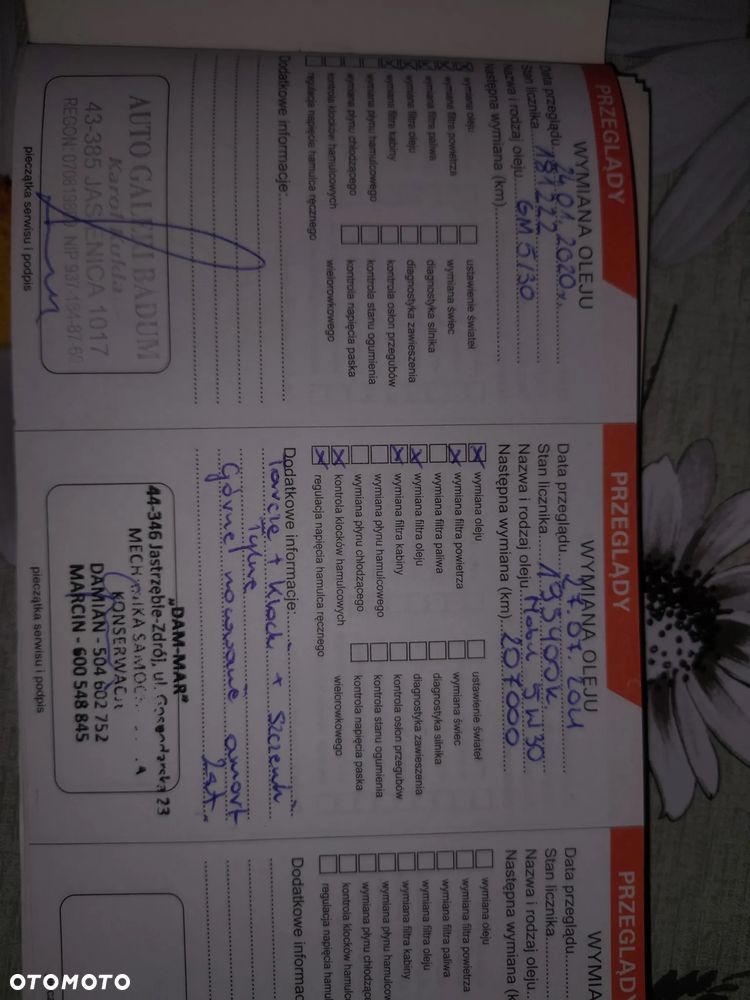 PRZEGLĄDY
WYMIANA OLEJU
Data przeglądu 24.01.2020r.
Stan licznika 181222
Nazwa i rodzaj oleju GM 5/30
Następna wymiana (km)
wymiana oleju
wymiana filtra powietrza
wymiana filtra paliwa
wymiana filtra oleju
wymiana filtra kabiny
wymiana płynu hamulcowego
wymiana płynu chłodzącego
kontrola klocków hamulcowych
regulacja napięcia hamulca ręcznego
ustawienie świateł
wymiana świec
diagnostyka silnika
diagnostyka zawieszenia
kontrola osłon przegubów
kontrola stanu ogumienia
kontrola napięcia paska
wielorowkowego
Dodatkowe informacje:
AUTO GALERI BADUM
Karol
43-385 JASIENICA 1017
REGON NIP 937-184-87-60
pieczątka serwisu i podpis
PRZEGLĄDY
WYMIANA OLEJU
Data przeglądu 27.07.2021
Stan licznika 193400k
Nazwa i rodzaj oleju Mobil 5W30
Następna wymiana (km) 207000
wymiana oleju
wymiana filtra powietrza
wymiana filtra paliwa
wymiana filtra oleju
wymiana filtra kabiny
wymiana płynu hamulcowego
wymiana płynu chłodzącego
kontrola klocków hamulcowych
regulacja napięcia hamulca ręcznego
ustawienie świateł
wymiana świec
diagnostyka silnika
diagnostyka zawieszenia
kontrola osłon przegubów
kontrola stanu ogumienia
kontrola napięcia paska
wielorowkowego
Dodatkowe informacje:
Tarcze + klocki + Szczęki
Tylne
Górne amort
"DAM-MAR"
44-346 Jastrzębie-Zdrój, ul. Gospodarska 23
MECHANIKA
KONSERWACJA
DAMIAN - 504 602 752
MARCIN - 600 548 845
pieczątka serwisu i podpis
PRZEGLĄDY
WYMIA
Data przeglądu
Stan licznika
Nazwa i rodzaj oleju
Następna wymiana (k
wymiana oleju
wymiana filtra powietrza
wymiana filtra paliwa
wymiana filtra oleju
wymiana filtra kabiny
wymiana płynu hamulcow
wymiana płynu chłodząc
kontrola klocków hamulc
regulacja napięcia hamul
Dodatkowe informac
OTOMOTO